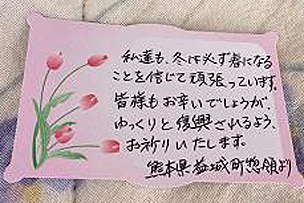 私達も、冬は必ず春になる
ことを信じて頑張っています。
皆様もお辛いでしょうが、
ゆっくりと復興されるよう、
お祈りいたします。
熊本県益城町惣領より